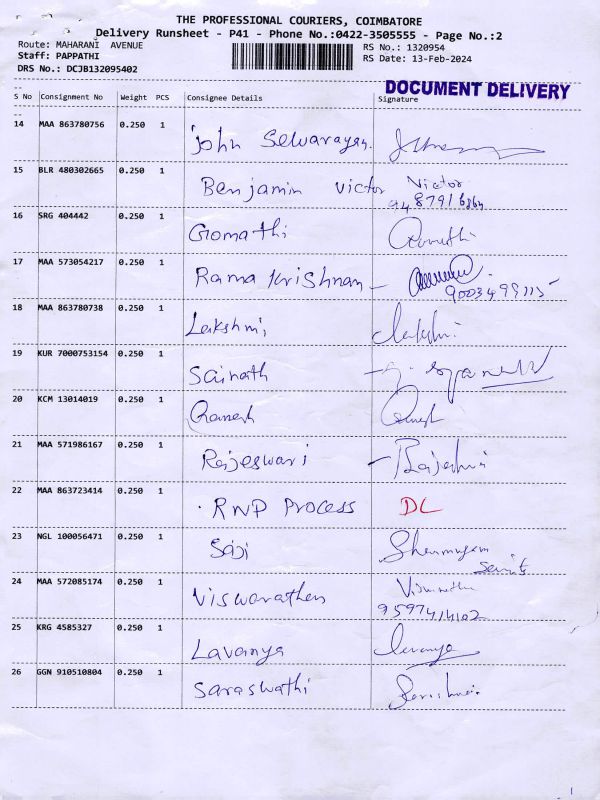 THE PROFESSIONAL COURIERS, COIMBATORE
Delivery Runsheet - P41 - Phone No.:0422-3505555 - Page No.:2
Route: MAHARANI AVENUE RS No.: 1320954
Staff: PAPPATHI RS Date: 13-Feb-2024
DRS No.: DCJB132095402
DOCUMENT DELIVERY
S No Consignment No Weight PCS Consignee Details Signature
14 MAA 863780756 0.250 1 John Selvarayan.
15 BLR 480302665 0.250 1 Benjamin victor Victor
16 SRG 404442 0.250 1 Gomathi Gomathi
17 MAA 573054217 0.250 1 Rama Krishnan -
18 MAA 863780738 0.250 1 Lakshmi, Lakshmi
19 KUR 7000753154 0.250 1 Sainath
20 KCM 13014019 0.250 1 Ganesh Ganesh
21 MAA 571986167 0.250 1 Rajeswari
22 MAA 863723414 0.250 1 . RNP Process DL
23 NGL 100056471 0.250 1 Saji Shanmugam
24 MAA 572085174 0.250 1 Viswanathan
9597414102
25 KRG 4585327 0.250 1 Lavanya Lavanya
26 GGN 910510804 0.250 1 Saraswathi